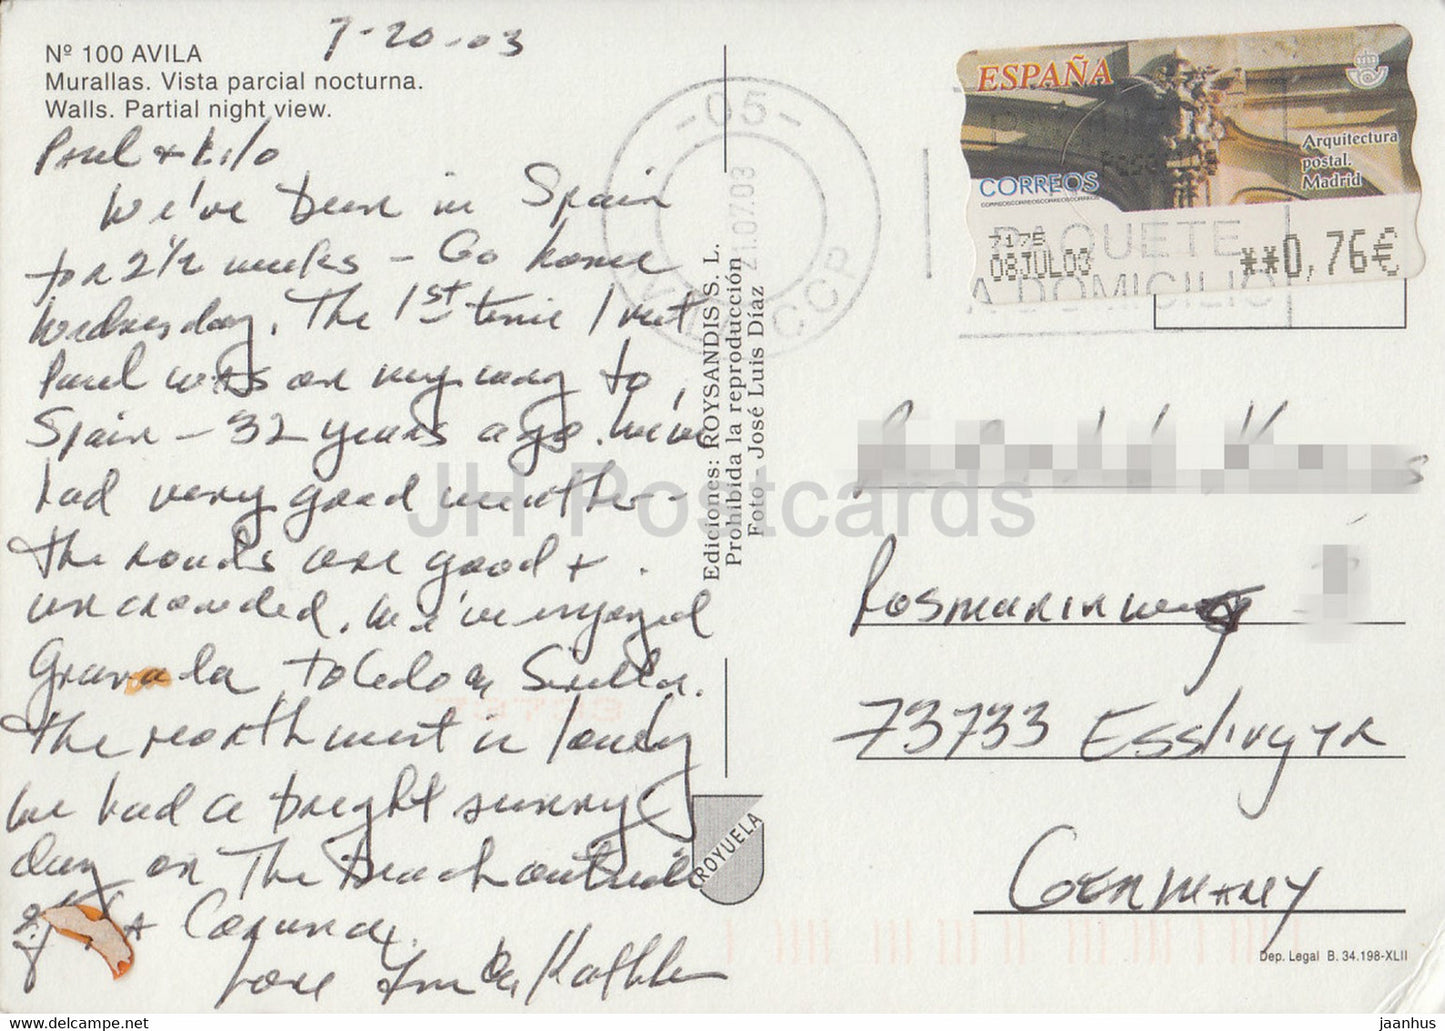 7-20-03
Nº 100 AVILA
Murallas. Vista parcial nocturna.
Walls. Partial night view.
Paul + Kilo
We've been in Spain
for 2½ weeks - Go home
Wednesday. The 1st time I met
Paul was on my way to
Spain - 32 years ago. We've
had very good weather -
the roads are good +
uncrowded. We've enjoyed
Granada Toledo & Sevilla.
The northwest is lovely
we had a bright sunny
day on the beach outside
of La Coruna.
Love & Kathleen
Ediciones: ROYSANDIS S. L.
Prohibida la reproducción
Foto José Luis Díaz
ROYUELA
-05-
21.07.03
CCP
ESPAÑA
Arquitectura
postal.
Madrid
CORREOS
CORREOSCORREOSCORREOSCORREOSCORREOS
7175
08JUL03
**0,76€
PAQUETE
A DOMICILIO
Rosmarinweg
73733 Esslingen
GERMANY
73733
Dep. Legal B. 34.198-XLII
JH Postcards
jaanhus - delcampe.net